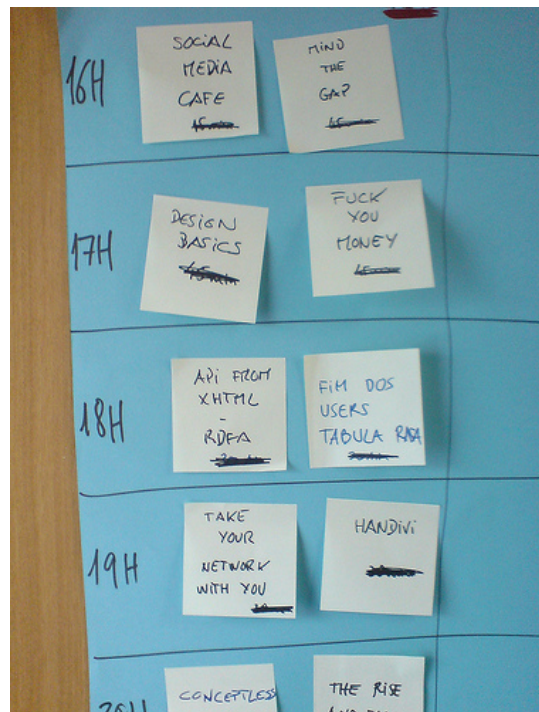 16H
SOCIAL
MEDIA
CAFE
MIND
THE
GAP
17H
DESIGN
BASICS
45 min
FUCK
YOU
MONEY
18H
API FROM
XHTML
-
RDFA
FIM DOS
USERS
TABULA RASA
19H
TAKE
YOUR
NETWORK
WITH YOU
HANDIVI
20H
CONCEPTLESS
THE RISE